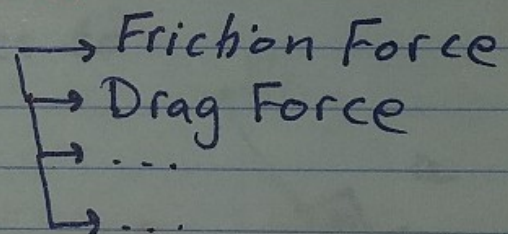 → Friction Force
→ Drag Force
→ ...
→ ...